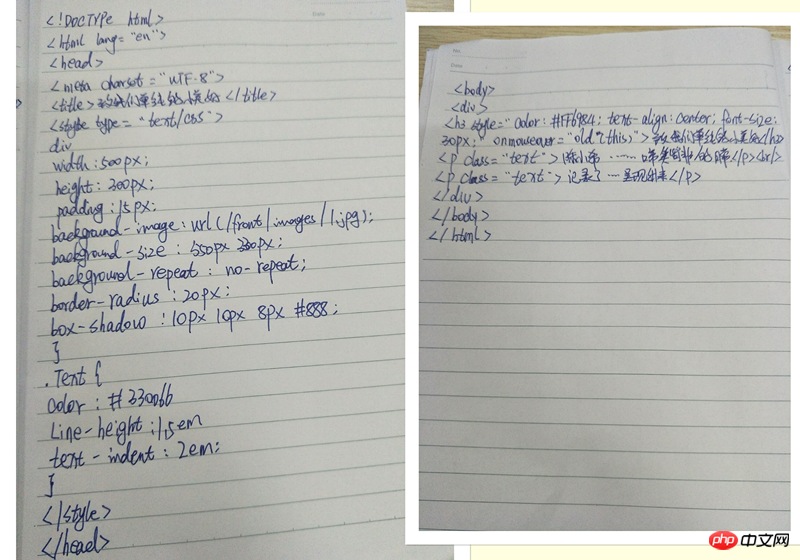 <!DOCTYPE html>
<html lang="en">
<head>
<meta charset="UTF-8">
<title>致我们单纯的小美好</title>
<style type="text/css">
div
width:500px;
height:200px;
padding:15px;
background-image:url(/front/images/1.jpg);
background-size:550px 330px;
background-repeat:no-repeat;
border-radius:20px;
box-shadow:10px 10px 8px #888;
}
.Text {
color:#330066
Line-height:1.5em
text-indent:2em;
}
</style>
</head>
<body>
<div>
<h3 style="color:#FF6984; text-align:center; font-size:
30px;" onmouseover="old(this)">致我们单纯的小美好</h3>
<p class="text">陈小希 …… 的</p><br/>
<p class="text">记录了…呈现出来</p>
</div>
</body>
</html>
php 中文网